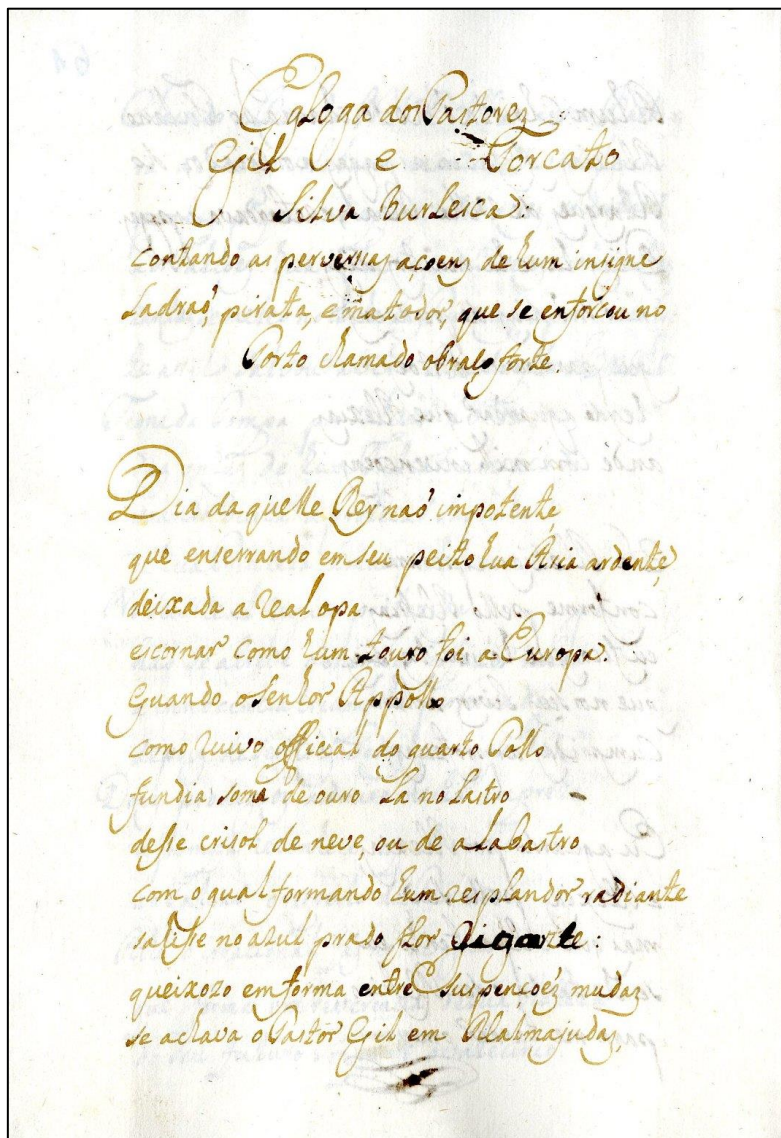 Egloga dos Pastorez
Gil e Torcato
Silva Burlesca.
contando as perversaz açoenz de hum insigne
Ladraõ, pirata, e matador, que se enforcou no
Porto chamado obraço forte.
Dia daquelle Rey naõ impotente,
que enserrando em seu peito hua Aria ardente,
deixada a real opa
escornar como hum touro foi a Europa.
Quando o senhor Appollo
como ruivo official do quarto Pollo
fundia soma de ouro La no Lastro
desse crisol de neve, ou de alabastro
com o qual formando hum resplandor radiante
sahisse no azul prado flor gigante:
queixozo em forma entre suspençoéz mudaz
se achava o Pastor Gil em